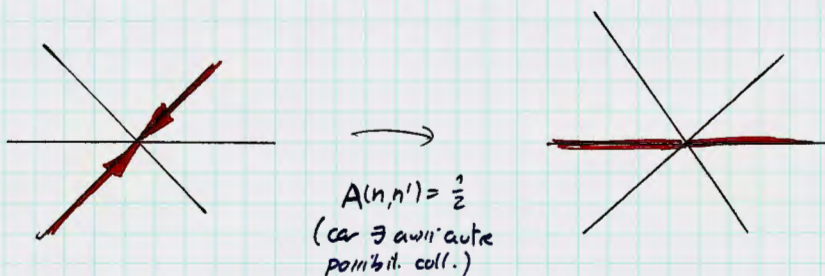 A(n,n') = 1/2
(car ∃ aussi autre
possibil. coll.)